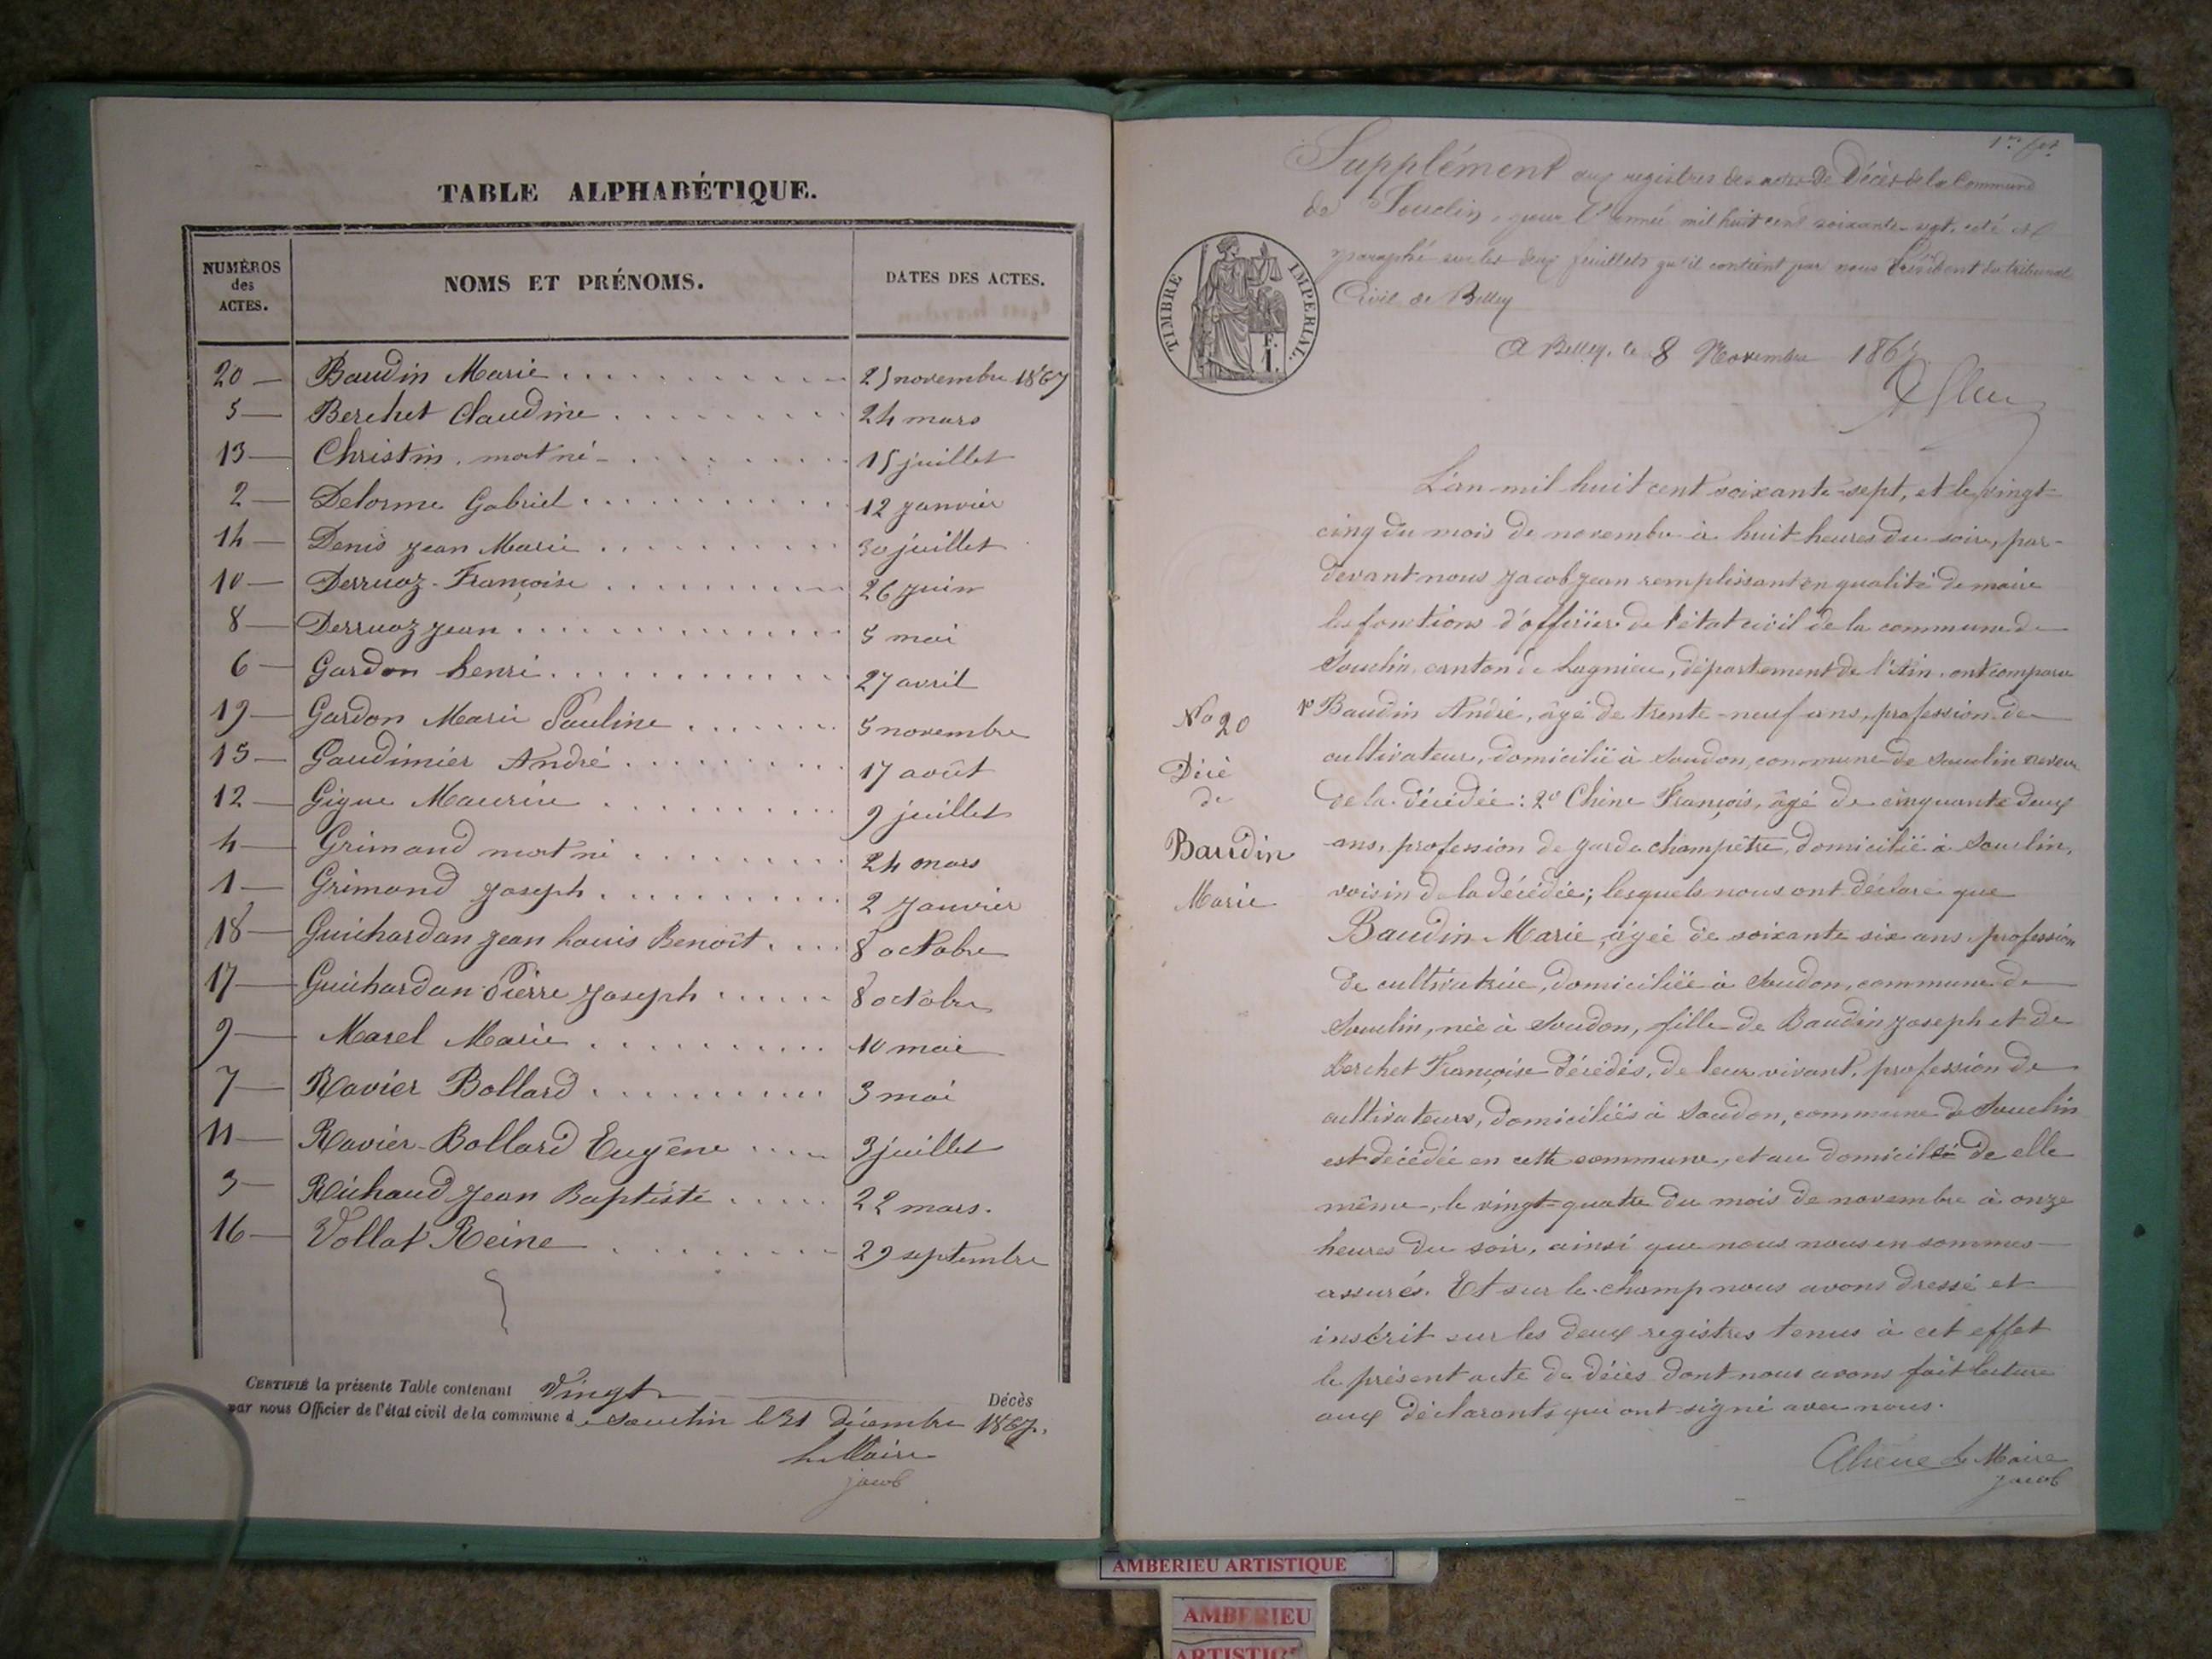 TABLE ALPHABÉTIQUE.
NUMÉROS des ACTES.
NOMS ET PRÉNOMS.
DATES DES ACTES.
20 — Baudin Marie 25 novembre 1867
5 — Berchet Claudine 24 mars
13 — Christin, mort né 15 juillet
2 — Delorme Gabriel 12 janvier
14 — Denis Jean Marie 30 juillet
10 — Derruaz Françoise 26 juin
8 — Derruaz Jean 5 mai
6 — Gardon henri 27 avril
19 — Gardon Marie Pauline 5 novembre
15 — Gaudimier André 17 août
12 — Gigue Maurice 9 juillet
4 — Grimand mort né 24 mars
1 — Grimand Joseph 2 Janvier
18 — Guichardan Jean Louis Benoît 8 octobre
17 — Guichardan Pierre Joseph 8 octobre
9 — Marel Marie 10 mai
7 — Ravier Bollard 3 mai
11 — Ravier-Bollard Eugène 3 juillet
3 — Richaud Jean Baptiste 22 mars.
16 — Vollat Reine 29 septembre
CERTIFIÉ la présente Table contenant Vingt Décès
par nous Officier de l'état civil de la commune de Souclin le 31 décembre 1867.
le Maire
jacob
Supplément aux registres des actes de Décès de la Commune
de Souclin, pour l'année mil huit cent soixante-sept, coté et
paraphé sur les deux feuillets qu'il contient par nous Président du tribunal
Civil de Belley
TIMBRE IMPERIAL.
1 F.
A Belley, le 8 Novembre 1867
L'an mil huit cent soixante-sept, et le vingt-
cinq du mois de novembre à huit heures du soire, par-
devant nous Jacob Jean remplissant en qualité de maire
les fonctions d'officier de l'état civil de la commune de
Souclin, canton de Lagnieu, département de l'Ain, ont comparu
No 20
Décè
de
Baudin
Marie
1º Baudin André, âgé de trente-neuf ans, profession de
cultivateur, domicilié à Soudon, commune de Souclin neveu
de la décédée: 2º Chêne François, âgé de cinquante deux
ans, profession de garde champêtre, domicilié à Souclin,
voisin de la décédée; lesquels nous ont déclaré que
Baudin Marie, âgée de soixante six ans, profession
de cultivatrice, domiciliée à Soudon, commune de
Souclin, née à Soudon, fille de Baudin Joseph et de
Berchet Françoise décédés, de leur vivant, profession de
cultivateurs, domiciliés à Soudon, commune de Souclin
est décédée en cette commune, et au domicile de elle
même, le vingt-quatre du mois de novembre à onze
heures du soir, ainsi que nous nous en sommes
assurés. Et sur le champ nous avons dressé et
inscrit sur les deux registres tenus à cet effet
le présent acte de décès dont nous avons fait lecture
aux déclarants qui ont signé avec nous.
Chêne Le Maire
jacob
AMBERIEU ARTISTIQUE
AMBERIEU
ARTISTIQ